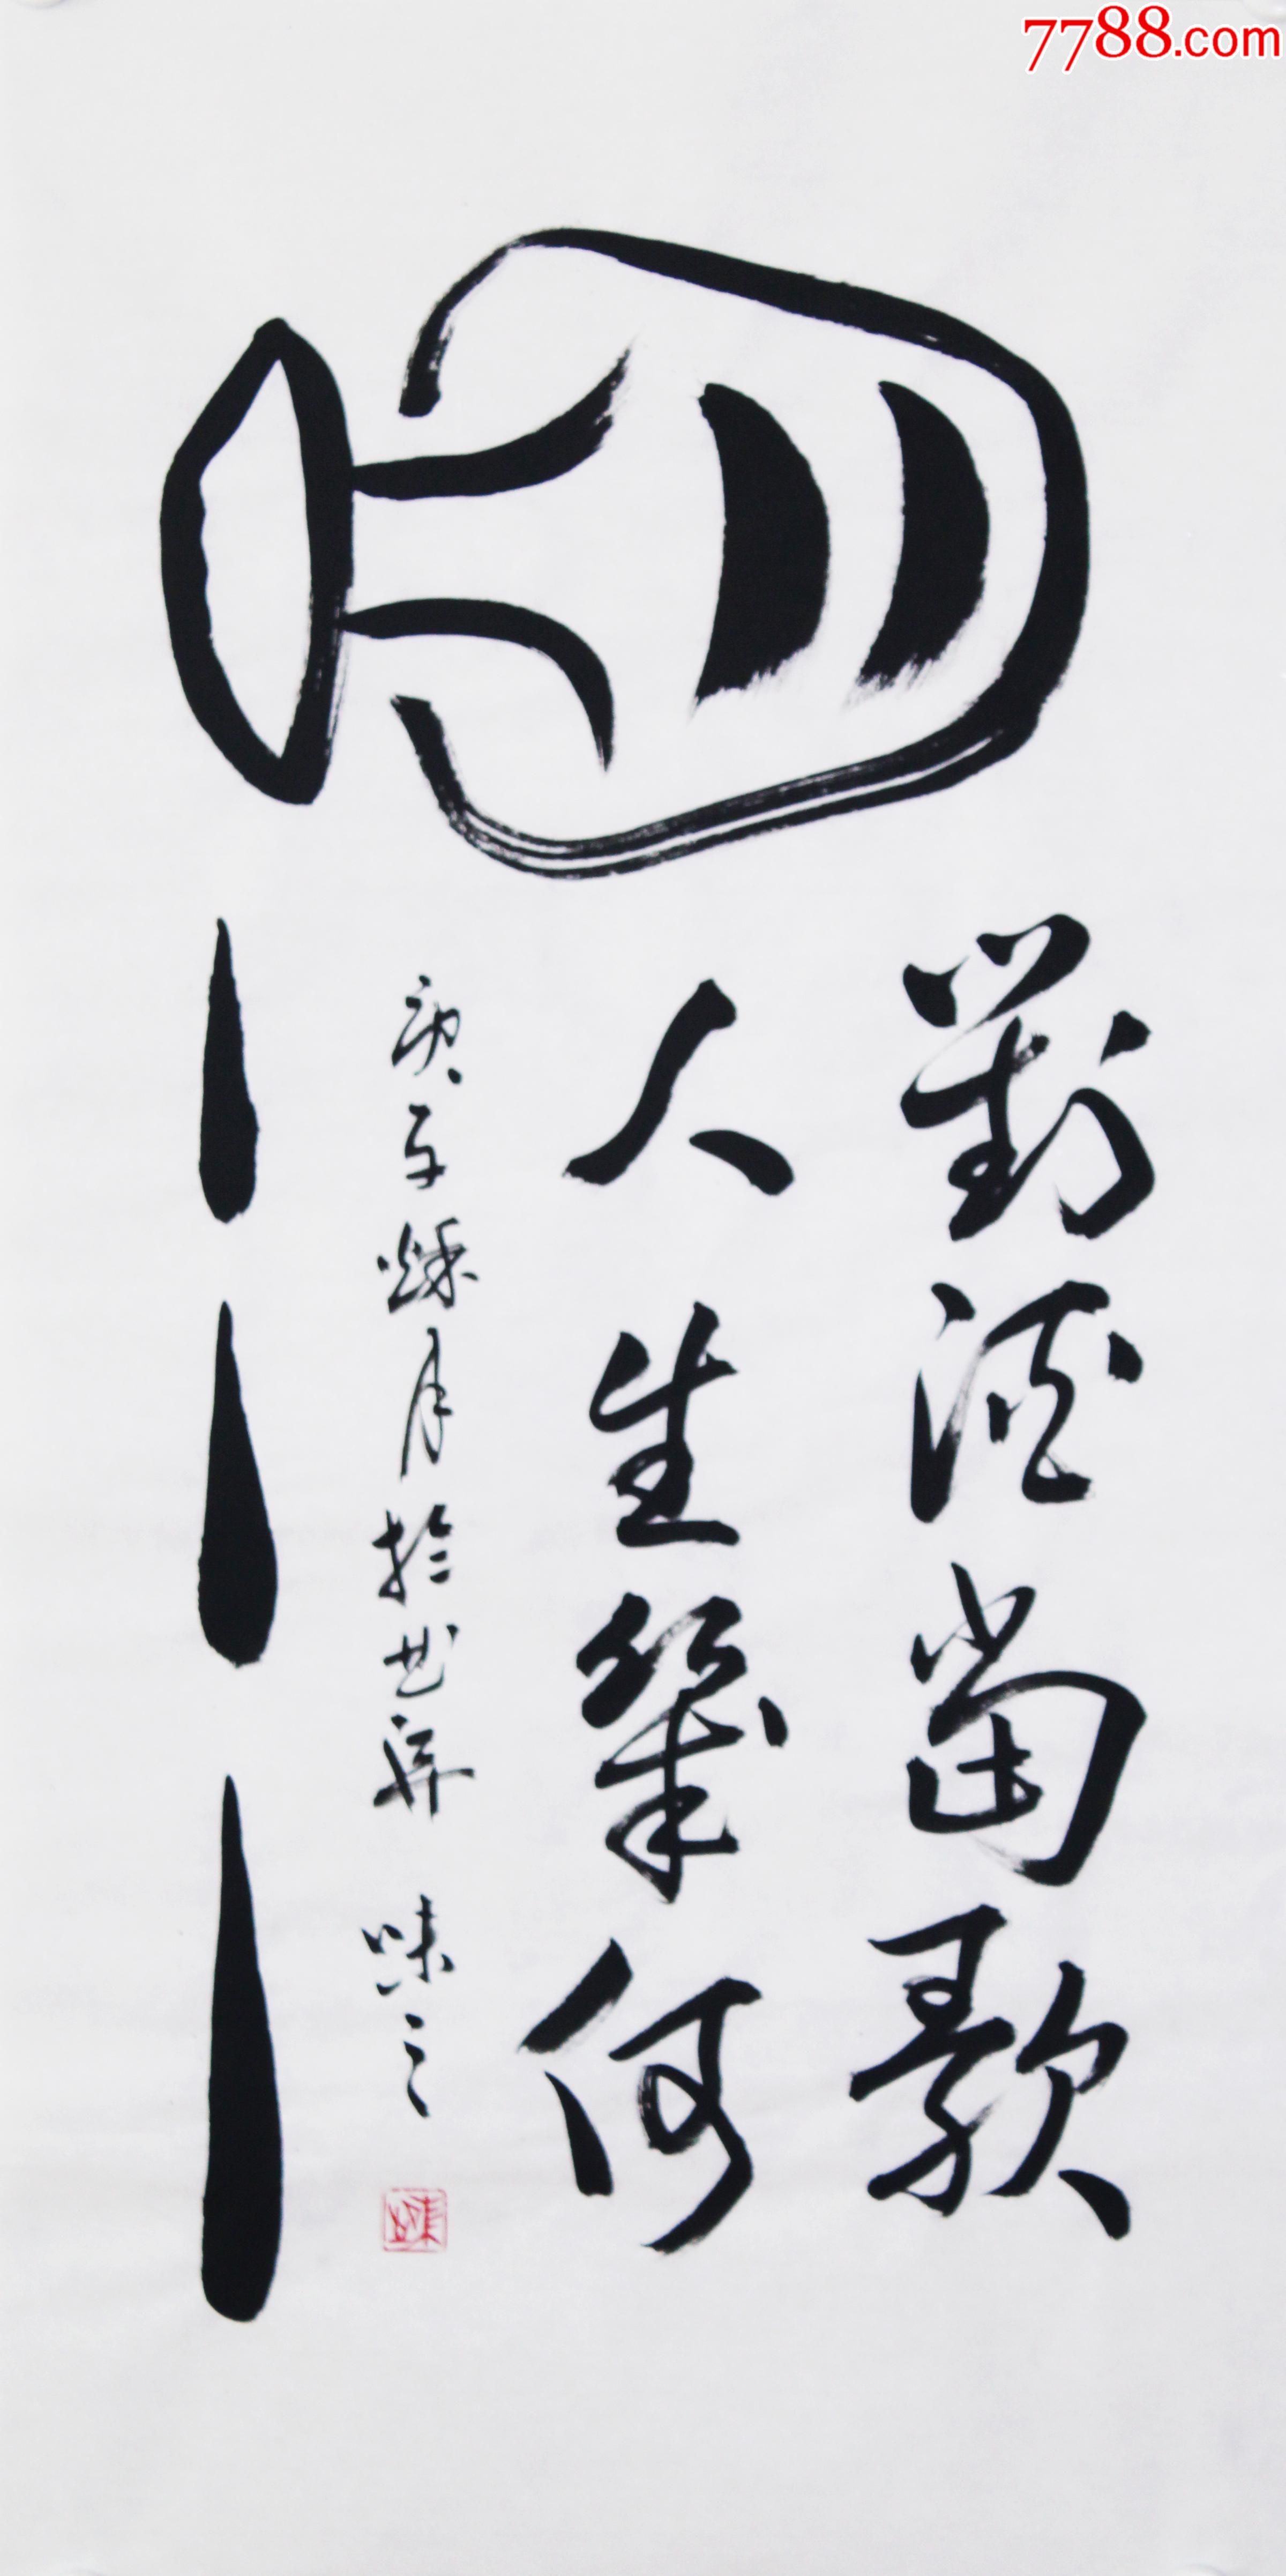 7788.com
對酒當歌
人生幾何
庚子秋月於北屏 味之